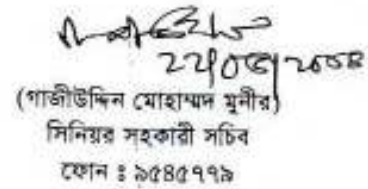 (গাজীউদ্দিন মোহাম্মদ মুনীর)
সিনিয়র সহকারী সচিব
ফোন ঃ ৯৫৪৫৭৭৯